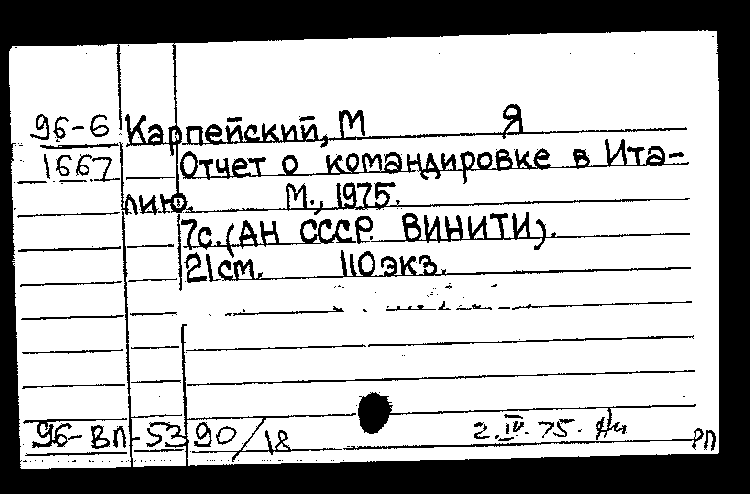 96-6 Карпейский, М Я
1667 Отчет о командировке в Ита-
лию. М., 1975.
7с. (АН СССР. ВИНИТИ).
21 ст. 110 экз.
96-ВП-5390/18 2.IV.75.
РП